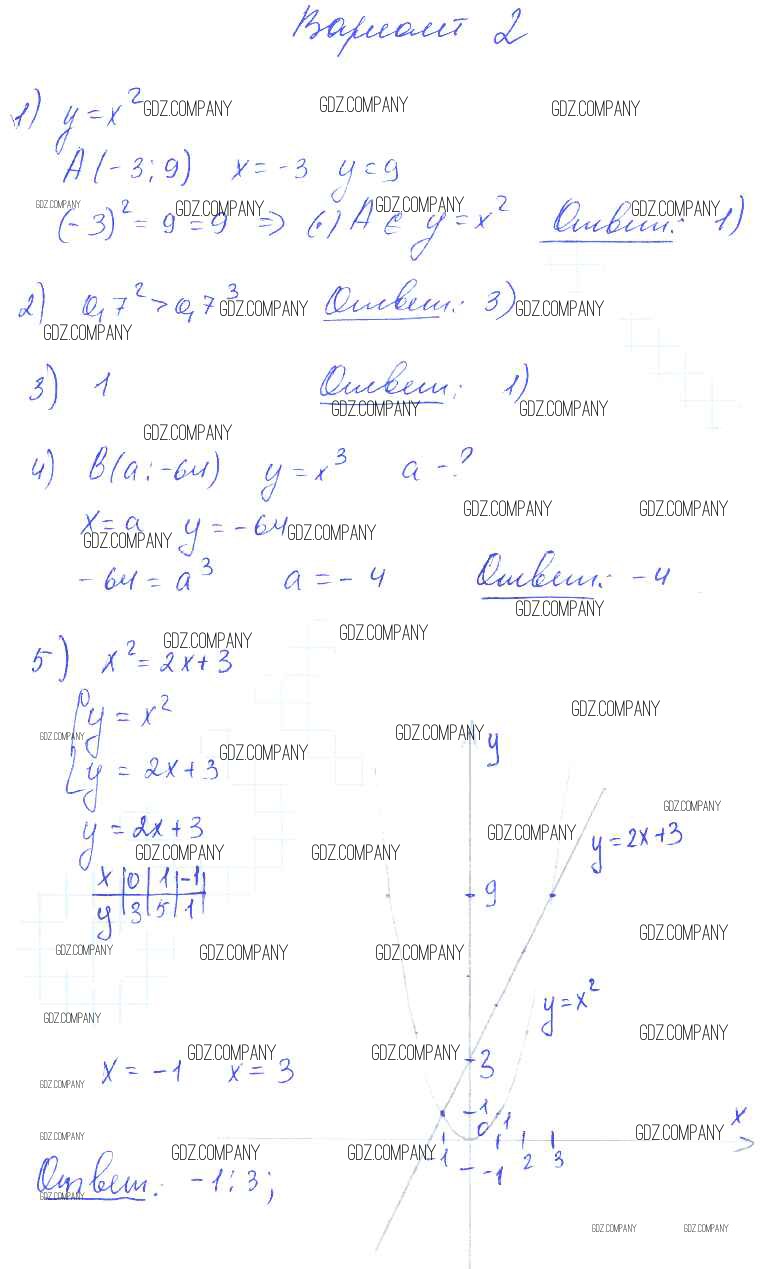 Вариант 2
1) y = x² GDZ.COMPANY GDZ.COMPANY GDZ.COMPANY
A(-3; 9) x = -3 y = 9
GDZ.COMPANY GDZ.COMPANY GDZ.COMPANY GDZ.COMPANY
(-3)² = 9 = 9 => (·) A ∈ y = x² Ответ: 1)
2) 0,7² > 0,7³ GDZ.COMPANY Ответ: 3) GDZ.COMPANY
GDZ.COMPANY
3) 1 Ответ: 1)
GDZ.COMPANY GDZ.COMPANY
GDZ.COMPANY
4) B(a; -64) y = x³ a - ?
GDZ.COMPANY GDZ.COMPANY
x = a y = -64 GDZ.COMPANY
GDZ.COMPANY
-64 = a³ a = -4 Ответ: -4
GDZ.COMPANY
GDZ.COMPANY GDZ.COMPANY
5) x² = 2x + 3
y = x² GDZ.COMPANY
GDZ.COMPANY GDZ.COMPANY y
GDZ.COMPANY
y = 2x + 3
GDZ.COMPANY
y = 2x + 3 GDZ.COMPANY y = 2x + 3
GDZ.COMPANY GDZ.COMPANY
x 0 1 -1
y 3 5 1
9
GDZ.COMPANY
GDZ.COMPANY GDZ.COMPANY GDZ.COMPANY
y = x²
GDZ.COMPANY GDZ.COMPANY
GDZ.COMPANY GDZ.COMPANY
x = -1 x = 3 3
GDZ.COMPANY
1 0 1 x
GDZ.COMPANY GDZ.COMPANY GDZ.COMPANY GDZ.COMPANY
-1 -1 2 3
Ответ: -1; 3;
GDZ.COMPANY
GDZ.COMPANY GDZ.COMPANY